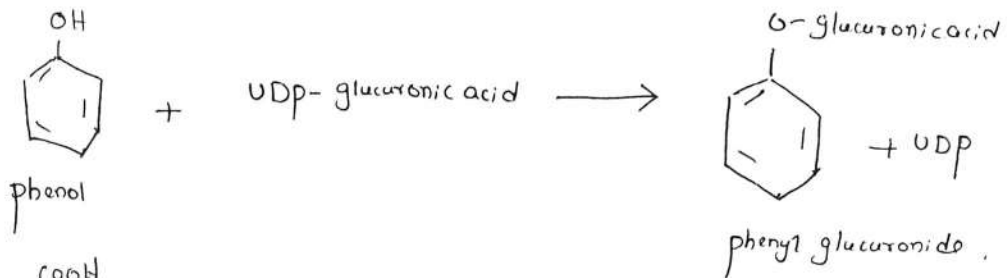 OH
O- glucuronic acid
+ UDP- glucuronic acid → + UDP
phenol
phenyl glucuronide.
COOH